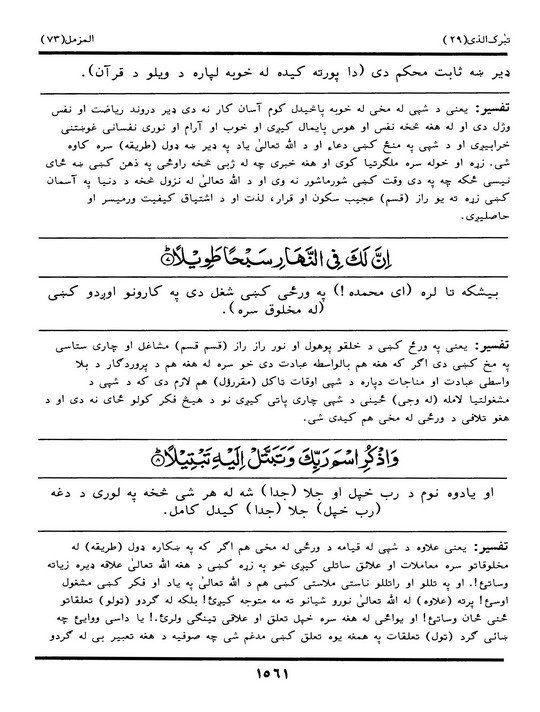 تبٰرک الذی (٢٩) المزمل (٧٣)
ډیر ښه ثابت محکم دی (دا پورته کیده له خوبه لپاره د ویلو د قرآن).
تفسیر: یعنی د شپی له مخی له خوبه پاڅیدل کوم آسان کار نه دی ډیر دروند ریاضت او نفس
وژل دی او له هغه څخه نفس او هوس پایمال کیږی او خوب او آرام او نوری نفسانی غوښتنی
خرابیږی او د شپی په منځ کښی دعاء او د الله تعالیٰ یاد په ډیر ښه ډول (طریقه) سره کاوه
شی. زړه او خوله سره ملګرتیا کوی او هغه خبری چه له ژبی څخه راوځی په ذهن کښی ښه ځای
نیسی ځکه چه په دی وقت کښی شورماشور نه وی او د الله تعالیٰ له نزول څخه د دنیا په آسمان
کښی زړه ته یو راز (قسم) عجیب سکون او قرار، لذت او د اشتیاق کیفیت ورمیسر او
حاصلیږی.
اِنَّ لَكَ فِی النَّهَارِ سَبْحًا طَوِیْلًا ۝۷
بیشکه تا لره (ای محمده!) په ورځی کښی شغل دی په کارونو اوږدو کښی
(له مخلوق سره).
تفسیر: یعنی په ورځ کښی د خلقو پوهول او نور راز راز (قسم قسم) مشاغل او چاری ستاسی
په مخ کښی دی اګر که هغه هم بالواسطه عبادت دی خو سره له هغه هم د پروردګار د بلا
واسطی عبادت او مناجات دپاره د شپی اوقات ټاکل (مقررؤل) هم لازم دی که د شپی د
مشغولتیا لامله (له وجی) ځینی د شپی چاری پاتی کیږی نو د هیڅ فکر کولو ځای نه دی او د
هغو تلافی د ورځی له مخی هم کیدی شی.
وَاذْكُرِ اسْمَ رَبِّكَ وَتَبَتَّلْ اِلَیْهِ تَبْتِیْلًا ۝۸
او یادوه نوم د رب خپل او جلا (جدا) شه له هر شی څخه په لوری د دغه
(رب خپل) جلا (جدا) کیدل کامل.
تفسیر: یعنی علاوه د شپی له قیامه د ورځی له مخی هم اګر که په ښکاره ډول (طریقه) له
مخلوقاتو سره معاملات او علائق ساتلی کیږی خو په زړه کښی د هغه الله تعالیٰ علاقه ډیره زیاته
وساتئ!. او په تللو او راتللو ناستی ملاستی کښی هم د الله تعالیٰ په یاد او فکر کښی مشغول
اوسئ! پرته (علاوه) له الله تعالیٰ نورو شیانو ته مه متوجه کیږئ! بلکه له ګردو (ټولو) تعلقاتو
ځنی ځان وساتئ! او یواځی له هغه سره خپل تعلق او علاقی ټینګی ولرئ.! یا داسی ووایئ چه
ښائی ګرد (ټول) تعلقات په همغه یوه تعلق کښی مدغم شی چه صوفیه د هغه تعبیر بی له ګردو
١٥٦١